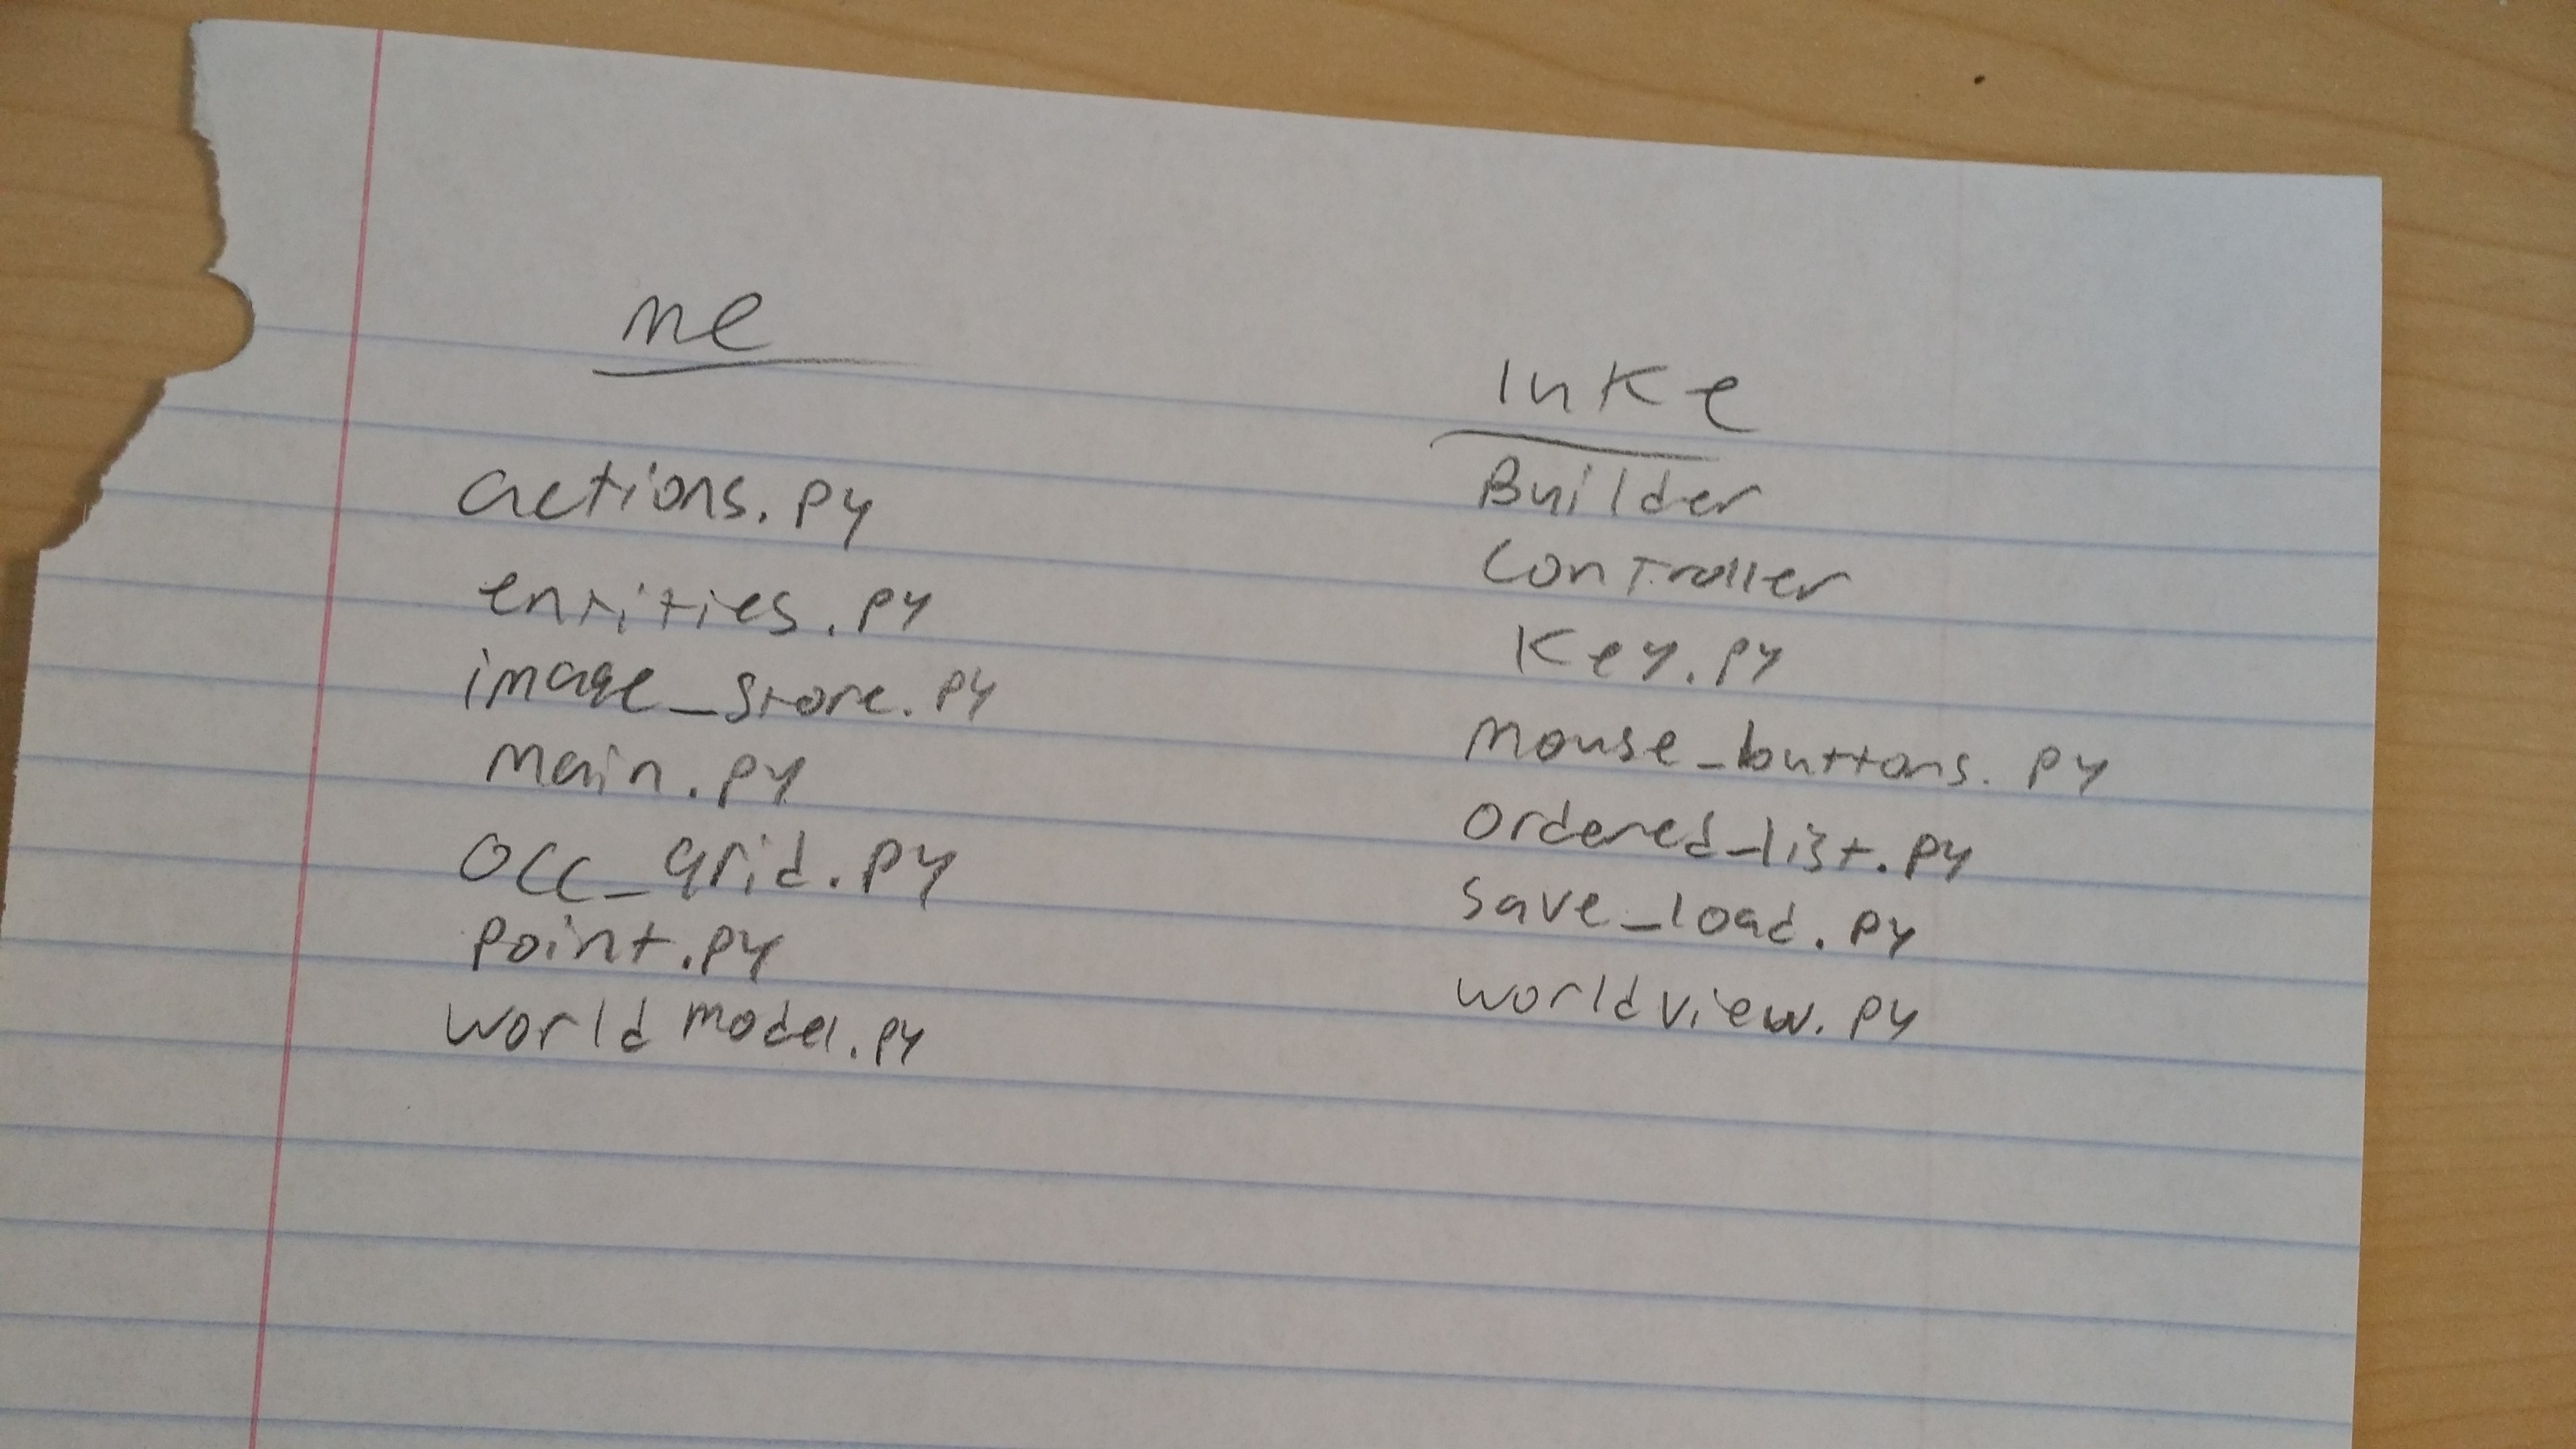 me
actions.py
entities.py
image_store.py
main.py
occ_grid.py
point.py
worldmodel.py
Inke
Builder
Controller
Key.py
mouse_buttons.py
ordered_list.py
save_load.py
worldview.py